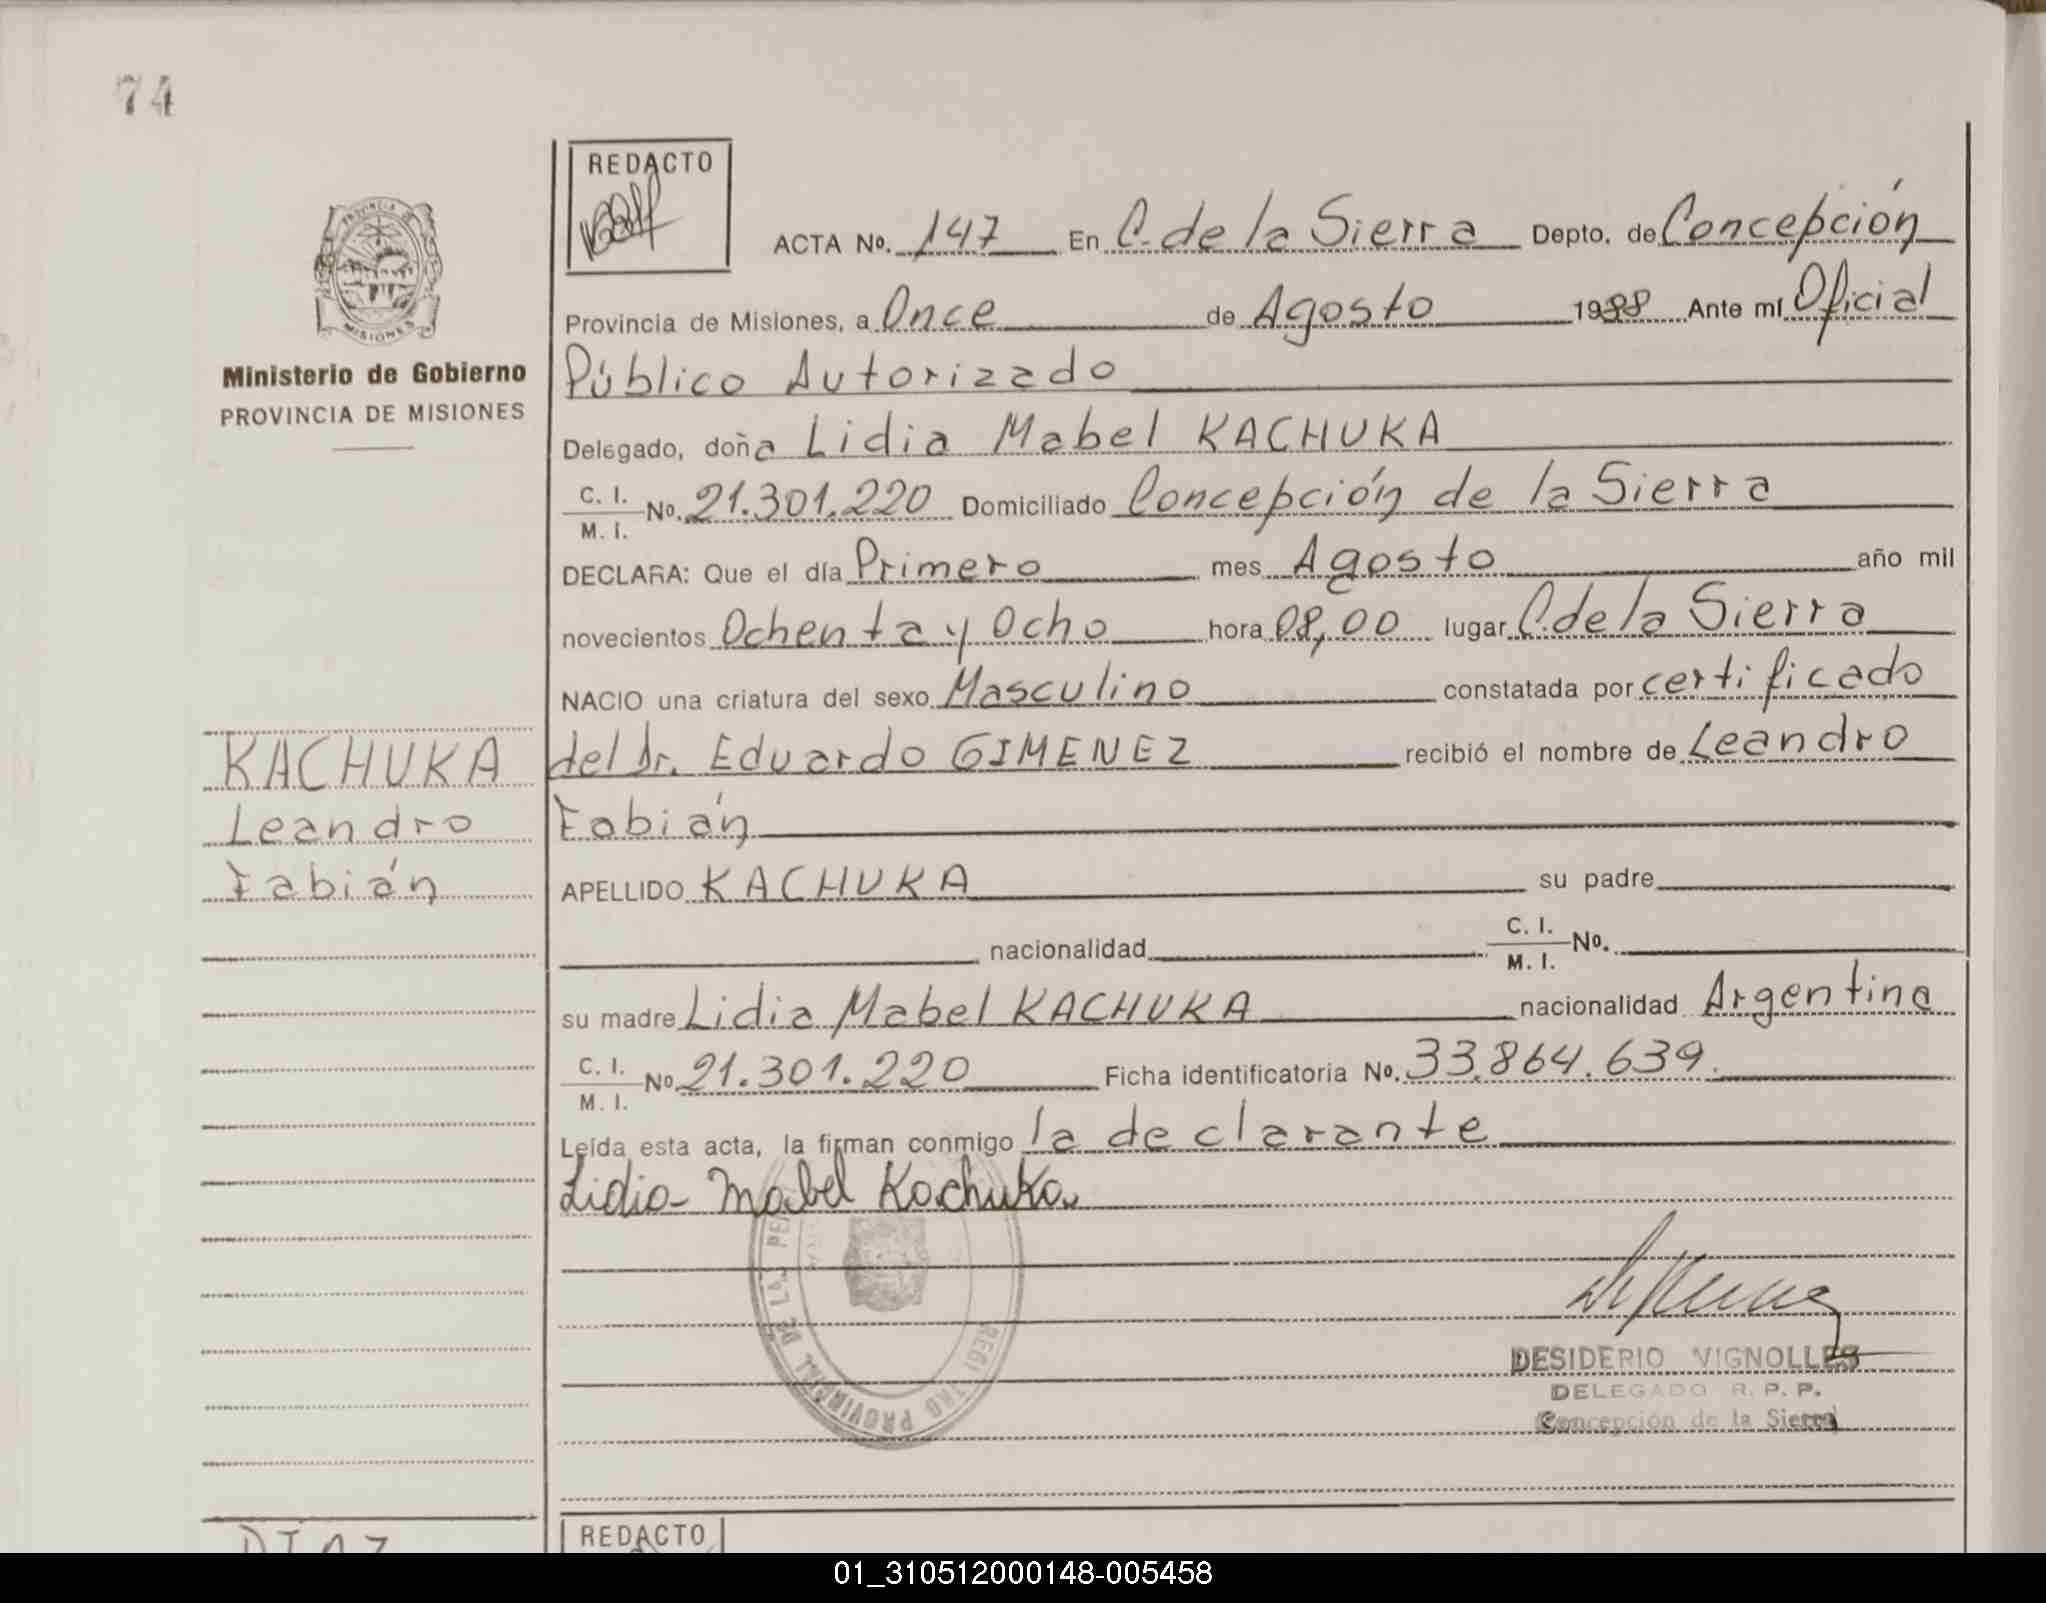 74
REDACTO
ACTA No. 147 En C. de la Sierra Depto. de Concepción
Provincia de Misiones, a Once de Agosto 1988 Ante mí Oficial
Público Autorizado
Delegado, doña Lidia Mabel KACHUKA
C. I.
M. I. No. 21.301.220 Domiciliado Concepción de la Sierra
DECLARA: Que el día Primero mes Agosto año mil
novecientos Ochenta y Ocho hora 08,00 lugar C. de la Sierra
NACIO una criatura del sexo Masculino constatada por certificado
del Dr. Eduardo GIMENEZ recibió el nombre de Leandro
Fabián
APELLIDO KACHUKA su padre
nacionalidad C. I.
M. I. No.
su madre Lidia Mabel KACHUKA nacionalidad Argentina
C. I.
M. I. No 21.301.220 Ficha identificatoria No. 33.864.639.
Leída esta acta, la firman conmigo la declarante
Lidia Mabel Kachuka
DESIDERIO VIGNOLLES
DELEGADO R. P. P.
Concepción de la Sierra
REGISTRO PROVINCIAL DE LAS PE
PROVINCIA DE
MISIONES
Ministerio de Gobierno
PROVINCIA DE MISIONES
KACHUKA
Leandro
Fabián
REDACTO
01_310512000148-005458